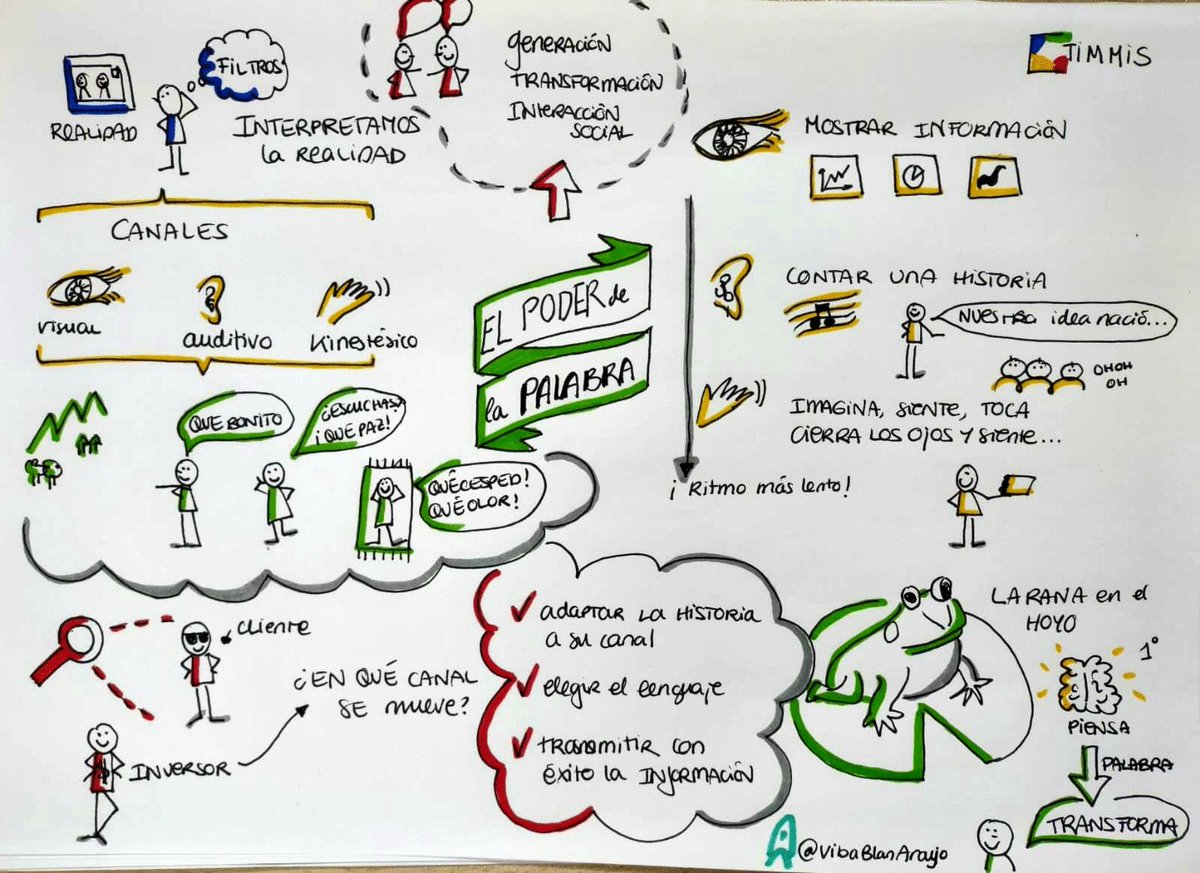 REALIDAD
FILTROS
INTERPRETAMOS
la REALIDAD
CANALES
visual
auditivo
Kinestésico
QUE BONITO
¿ESCUCHAS?
¡QUE PAZ!
QUÉ CESPED!
QUÉ OLOR!
generación
TRANSFORMACIÓN
INTERACCIÓN
SOCIAL
EL PODER de
la PALABRA
TIMMIS
MOSTRAR INFORMACIÓN
CONTAR UNA HISTORIA
NUESTRA idea nació...
OHOH
OH
IMAGINA, SIENTE, TOCA
CIERRA LOS OJOS Y SIENTE...
¡Ritmo más lento!
cliente
INVERSOR
¿EN QUÉ CANAL
SE mueve?
adaptar LA HISTORIA
a su canal
elegir el lenguaje
transmitir con
éxito la INFORMACIÓN
LA RANA en el
HOYO
1º
PIENSA
PALABRA
TRANSFORMA
@VibaBlanAraujo